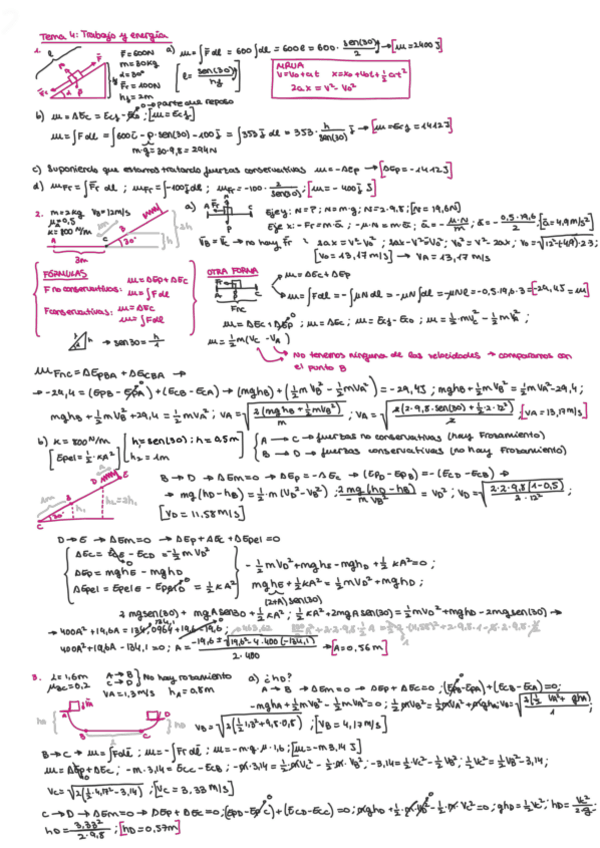 Tema 4: Trabajo y energía
1. F=600N a) W=∫F̄dl = 600∫dl = 600l = 600· sen(30)/2 → [W=2400J]
m=30kg
α=30º
Fr=100N
hf=2m
[l = sen(30)/hf]
MRUA
v=v₀+at x=x₀+v₀t+½at²
2ax = v²-v₀²
b) W=ΔEc = Ecf - Ec₀ → parte del reposo
[W=Ecf]
W=∫Fdl = ∫600i - p·sen(30) - 100i = ∫353i dl = 353· h/sen(30) → [W=Ecf=1412J]
m·g=30·9,8=294N
c) Suponiendo que estamos tratando fuerzas conservativas W=-ΔEp → [ΔEp=-1412J]
d) WFr=∫Fr dl ; WFr=∫-100i dl ; WFr=-100· 2/sen(30) ; [W=-400 J]
2. m=2kg VB=12m/s
μ=0,5
K=800 N/m
A C B 30º
3m
a) Eje y: N=P ; N=m·g ; N=2·9,8 ; [N=19,6N]
Eje x: -Fr=m·ā ; -μ·N=m·ā ; ā=-μ·N/m ; ā=-0,5·19,6/2 ; [ā=4,9m/s²]
VB=VC → no hay Fr : 2ax=v²-v₀² ; 2ax-v²=v₀² ; v₀²=v²-2ax ; v₀=√12²+(4,9)·2·3 ;
[v₀=13,17m/s] → VA=13,17 m/s
FÓRMULAS
F no conservativas: W=ΔEp+ΔEc
W=∫Fdl
F conservativas: W=ΔEc
W=∫Fdl
→ sen30=h/1
OTRA FORMA
W=ΔEc+ΔEp
W=∫Fdl=-∫μNdl=-μN∫dl=-μNl=-0,5·19,6·3=[-29,4J=W]
Fnc
W=ΔEc+ΔEp ; W=ΔEc ; W=Ecf-Ec₀ ; W=½mVC²-½mVA² ;
W=½m(VC-VA)
→ No tenemos ninguna de las velocidades → comparamos con
el punto B
WFnc=ΔEpBA+ΔEcBA →
→ -29,4=(EpB-EpA)+(EcB-EcA) → (mghB)+(½mVB²-½mVA²)=-29,4J ; mghB+½mVB²=½mVA²-29,4 ;
mghB+½mVB²+29,4=½mVA² ; VA=√2(mghB+½mVB²)/m ; VA=√2(2·9,8·sen(30)+½·2·12²)/2 ; [VA=13,17m/s]
b) K=800N/m h=sen(30) ; h=0,5m
[Epel=½·KA²] h₂=1m
A → C → fuerzas no conservativas (hay Frozamiento)
B → D → fuerzas conservativas (no hay Frozamiento)
B → D → ΔEm=0 → ΔEp=-ΔEc → (EpD-EpB)=-(EcD-EcB) →
→ mg(hD-hB)=½·m(VD²-VB²) ; 2mg(hD-hB)/mVB² = VD² ; VD=√2·2·9,8(1-0,5)/2·12² ;
[VD=11,58m/s]
D → E → ΔEm=0 → ΔEp+ΔEc+ΔEpel=0
ΔEc=EcE-EcD=-½mVD²
ΔEp=mghE-mghD
ΔEpel=EpelE-EpelD=½KA²
-½mVD²+mghE-mghD+½KA²=0 ;
mghE+½KA²=½mVD²+mghD ;
(2+A)sen(30)
2mgsen(30)+mgAsen30+½KA² ; ½KA²+2mgAsen(30)=½mVD²+mghD-2mgsen(30) →
→ 400A²+19,6A=134,0964+19,6-19,6 ;
400A²+19,6A-134,1=0 ; A=-19,6±√19,6²-4·400·(-134,1)/2·400 → [A=0,56m]
3. l=1,6m
μBC=0,2
A→B
C→D
No hay rozamiento
VA=1,3m/s hA=0,8m
a) ¿hD?
A → B → ΔEm=0 → ΔEp+ΔEc=0 ; (EpB-EpA)+(EcB-EcA)=0 ;
-mghA+½mVB²-½mVA²=0 ; ½mVB²=½mVA²+mghA ; VB=√2(½VA²+ghA)/1 ;
VB=√2(½1,3²+9,8·0,8) ; [VB=4,17m/s]
B→C → W=∫Fdl ; W=-∫Fr dl ; W=-m·g·μ·1,6 ; [W=-m3,14 J]
W=ΔEp+ΔEc ; -m·3,14=EcC-EcB ; -m·3,14=½·mVC²-½·mVB² ; -3,14=½·VC²-½VB² ; ½VC²=½VB²-3,14 ;
VC=√2(½·4,17²-3,14) ; [VC=3,33m/s]
C→D → ΔEm=0 → ΔEp+ΔEc=0 ; (EpD-EpC)+(EcD-EcC)=0 ; mghD+½·mVD²-½·mVC²=0 ; ghD=½VC² ; hD=VC²/2·g ;
hD=3,33²/2·9,8 ; [hD=0,57m]